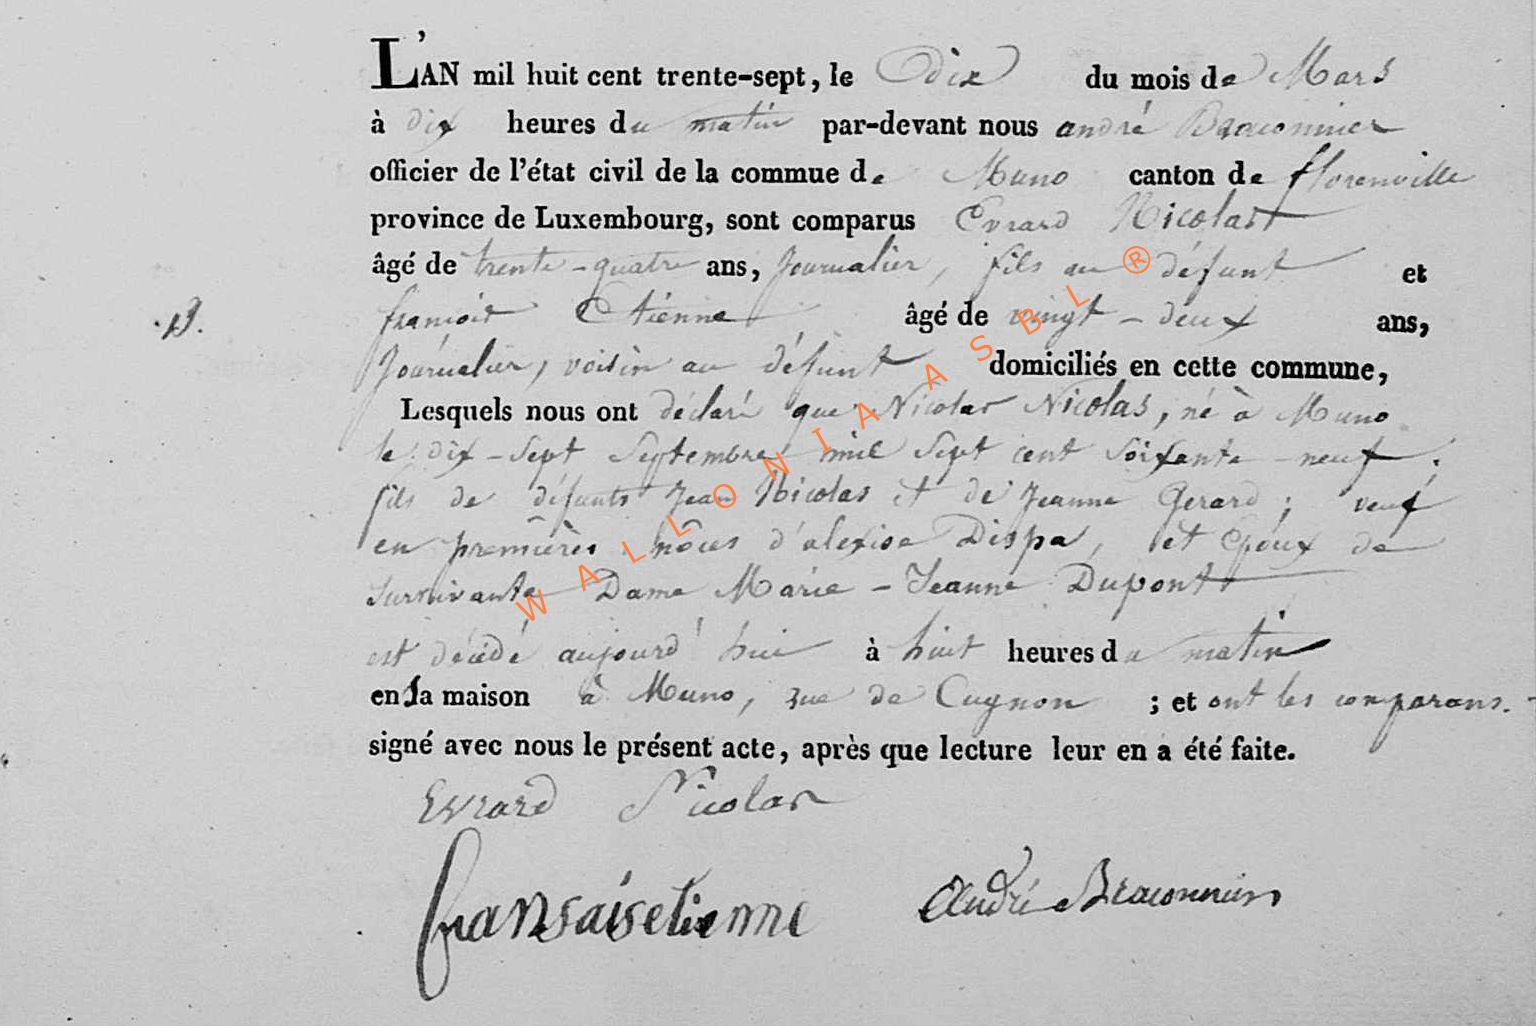 L'AN mil huit cent trente-sept, le dix du mois de Mars
à dix heures du matin par-devant nous andré Braconnier
officier de l'état civil de la commue de Muno canton de florenville
province de Luxembourg, sont comparus Evrard Nicolas
âgé de trente-quatre ans, Journalier, fils au défunt et
françois Etienne âgé de vingt-deux ans,
Journalier, voisin au défunt domiciliés en cette commune,
Lesquels nous ont déclaré que Nicolas Nicolas, né à Muno
le dix-sept Septembre mil sept cent soixante-neuf,
fils de défunts Jean Nicolas et de Jeanne Gerard; veuf
en premières nôces d'alexise Dispa, et Epoux de
Survivante Dame Marie-Jeanne Dupont
est décédé aujourd'hui à huit heures du matin
en sa maison à Muno, rue de Cugnon ; et ont les comparans.-
signé avec nous le présent acte, après que lecture leur en a été faite.
Evrard Nicolas
fransaisetienne André Braconnier
WALLONIA ASBL ®